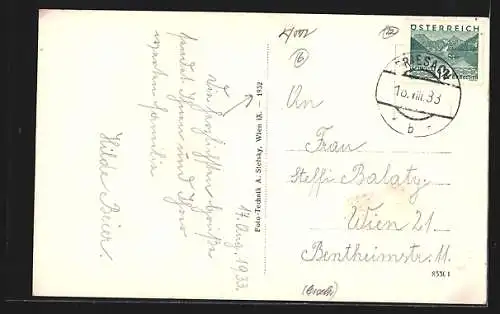 ÖSTERREICH
FRIESACH
18. VIII. 33
b
An
Frau
Steffi Balaty
Wien 21
Bentheimstr. 11.
85301
Foto-Technik A. Stefsky, Wien IX. – 1932
Die herzlichsten Grüße
sendet Ihnen und Ihrer
werten Familie
Hilde Beier.
17. Aug. 1933.